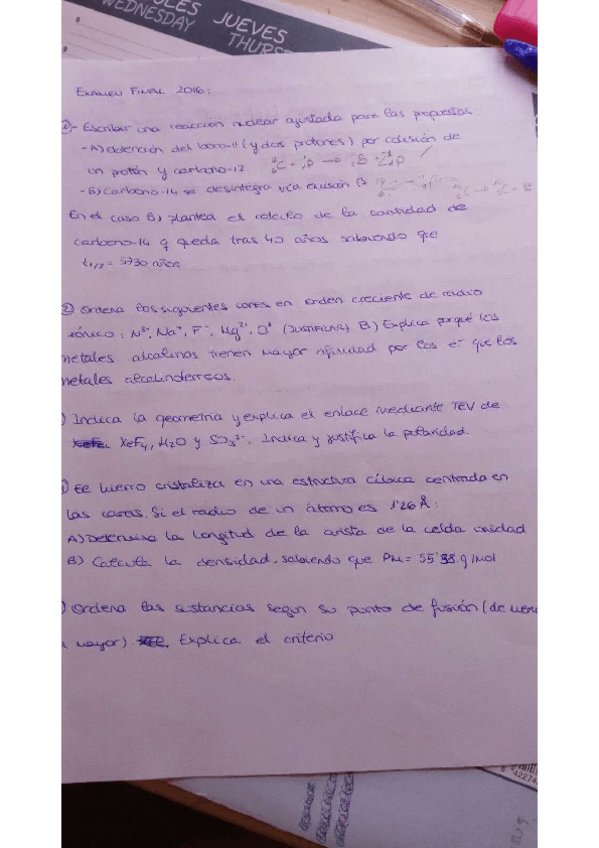 WEDNESDAY
JUEVES
THURS
EXAMEN FINAL 2016:
- Escribir una reacción nuclear ajustada para las propuestas:
- A) obtención del boro-11 (y dos protones) por colisión de
un protón y carbono-12
- B) Carbono-14 se desintegra vía emisión β
En el caso B) plantea el cálculo de la cantidad de
carbono-14 q queda tras 40 años sabiendo que
t1/2 = 5730 años
② Ordena los siguientes iones en orden creciente de radio
iónico: N³⁻, Na⁺, F⁻, Mg²⁺, O² (JUSTIFICAR) B) Explica porqué los
metales alcalinos tienen mayor afinidad por los e⁻ que los
metales alcalinotérreos.
) Indica la geometría y explica el enlace mediante TEV de
XeF4, H2O y SO3²⁻. Indica y justifica la polaridad
) El hierro cristaliza en una estructura cúbica centrada en
las caras. Si el radio de un átomo es 1'26 Å:
A) Determina la longitud de la arista de la celda unidad
B) Calcula la densidad, sabiendo que PM = 55'85 g/mol
) Ordena las sustancias según su punto de fusión (de men
a mayor). Explica el criterio